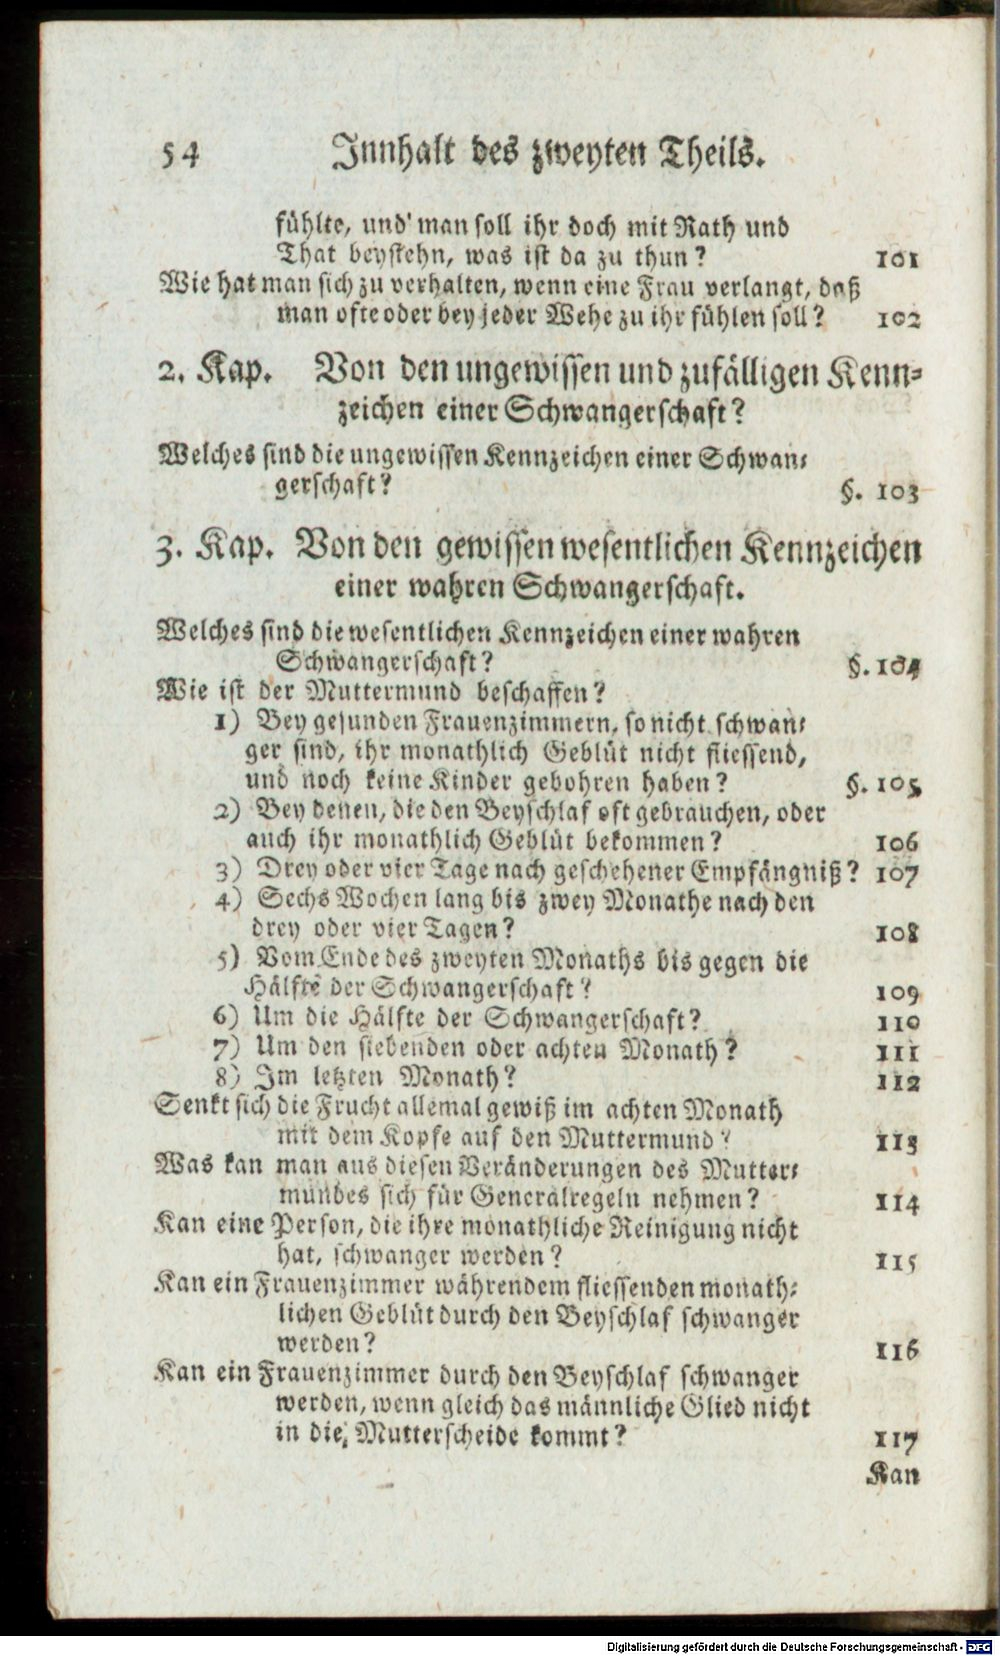 54 Innhalt des zweyten Theils.
fühlte, und man soll ihr doch mit Rath und
That beystehn, was ist da zu thun? 101
Wie hat man sich zu verhalten, wenn eine Frau verlangt, daß
man ofte oder bey jeder Wehe zu ihr fühlen soll? 102
2. Kap. Von den ungewissen und zufälligen Kenn-
zeichen einer Schwangerschaft?
Welches sind die ungewissen Kennzeichen einer Schwan-
gerschaft? §. 103
3. Kap. Von den gewissen wesentlichen Kennzeichen
einer wahren Schwangerschaft.
Welches sind die wesentlichen Kennzeichen einer wahren
Schwangerschaft? §. 104
Wie ist der Muttermund beschaffen?
1) Bey gesunden Frauenzimmern, so nicht schwan-
ger sind, ihr monathlich Geblüt nicht fliessend,
und noch keine Kinder gebohren haben? §. 105
2) Bey denen, die den Beyschlaf oft gebrauchen, oder
auch ihr monathlich Geblüt bekommen? 106
3) Drey oder vier Tage nach geschehener Empfängniß? 107
4) Sechs Wochen lang bis zwey Monathe nach den
drey oder vier Tagen? 108
5) Vom Ende des zweyten Monaths bis gegen die
Hälfte der Schwangerschaft? 109
6) Um die Hälfte der Schwangerschaft? 110
7) Um den siebenden oder achten Monath? 111
8) Im letzten Monath? 112
Senkt sich die Frucht allemal gewiß im achten Monath
mit dem Kopfe auf den Muttermund? 113
Was kan man aus diesen Veränderungen des Mutter-
mundes sich für Generalregeln nehmen? 114
Kan eine Person, die ihre monathliche Reinigung nicht
hat, schwanger werden? 115
Kan ein Frauenzimmer währendem fliessenden monath-
lichen Geblüt durch den Beyschlaf schwanger
werden? 116
Kan ein Frauenzimmer durch den Beyschlaf schwanger
werden, wenn gleich das männliche Glied nicht
in die Mutterscheide kommt? 117
Kan
Digitalisierung gefördert durch die Deutsche Forschungsgemeinschaft - DFG